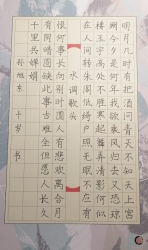 明月几时有把酒问青天不知天上宫
阙今夕是何年我欲乘风归去又恐琼
楼玉宇高处不胜寒起舞弄清影何似
在人间转朱阁低绮户照无眠不应有
水调歌头
恨何事长向别时圆人有悲欢离合月
有阴晴圆缺此事古难全但愿人长久
千里共婵娟
孙旭东 十岁 书